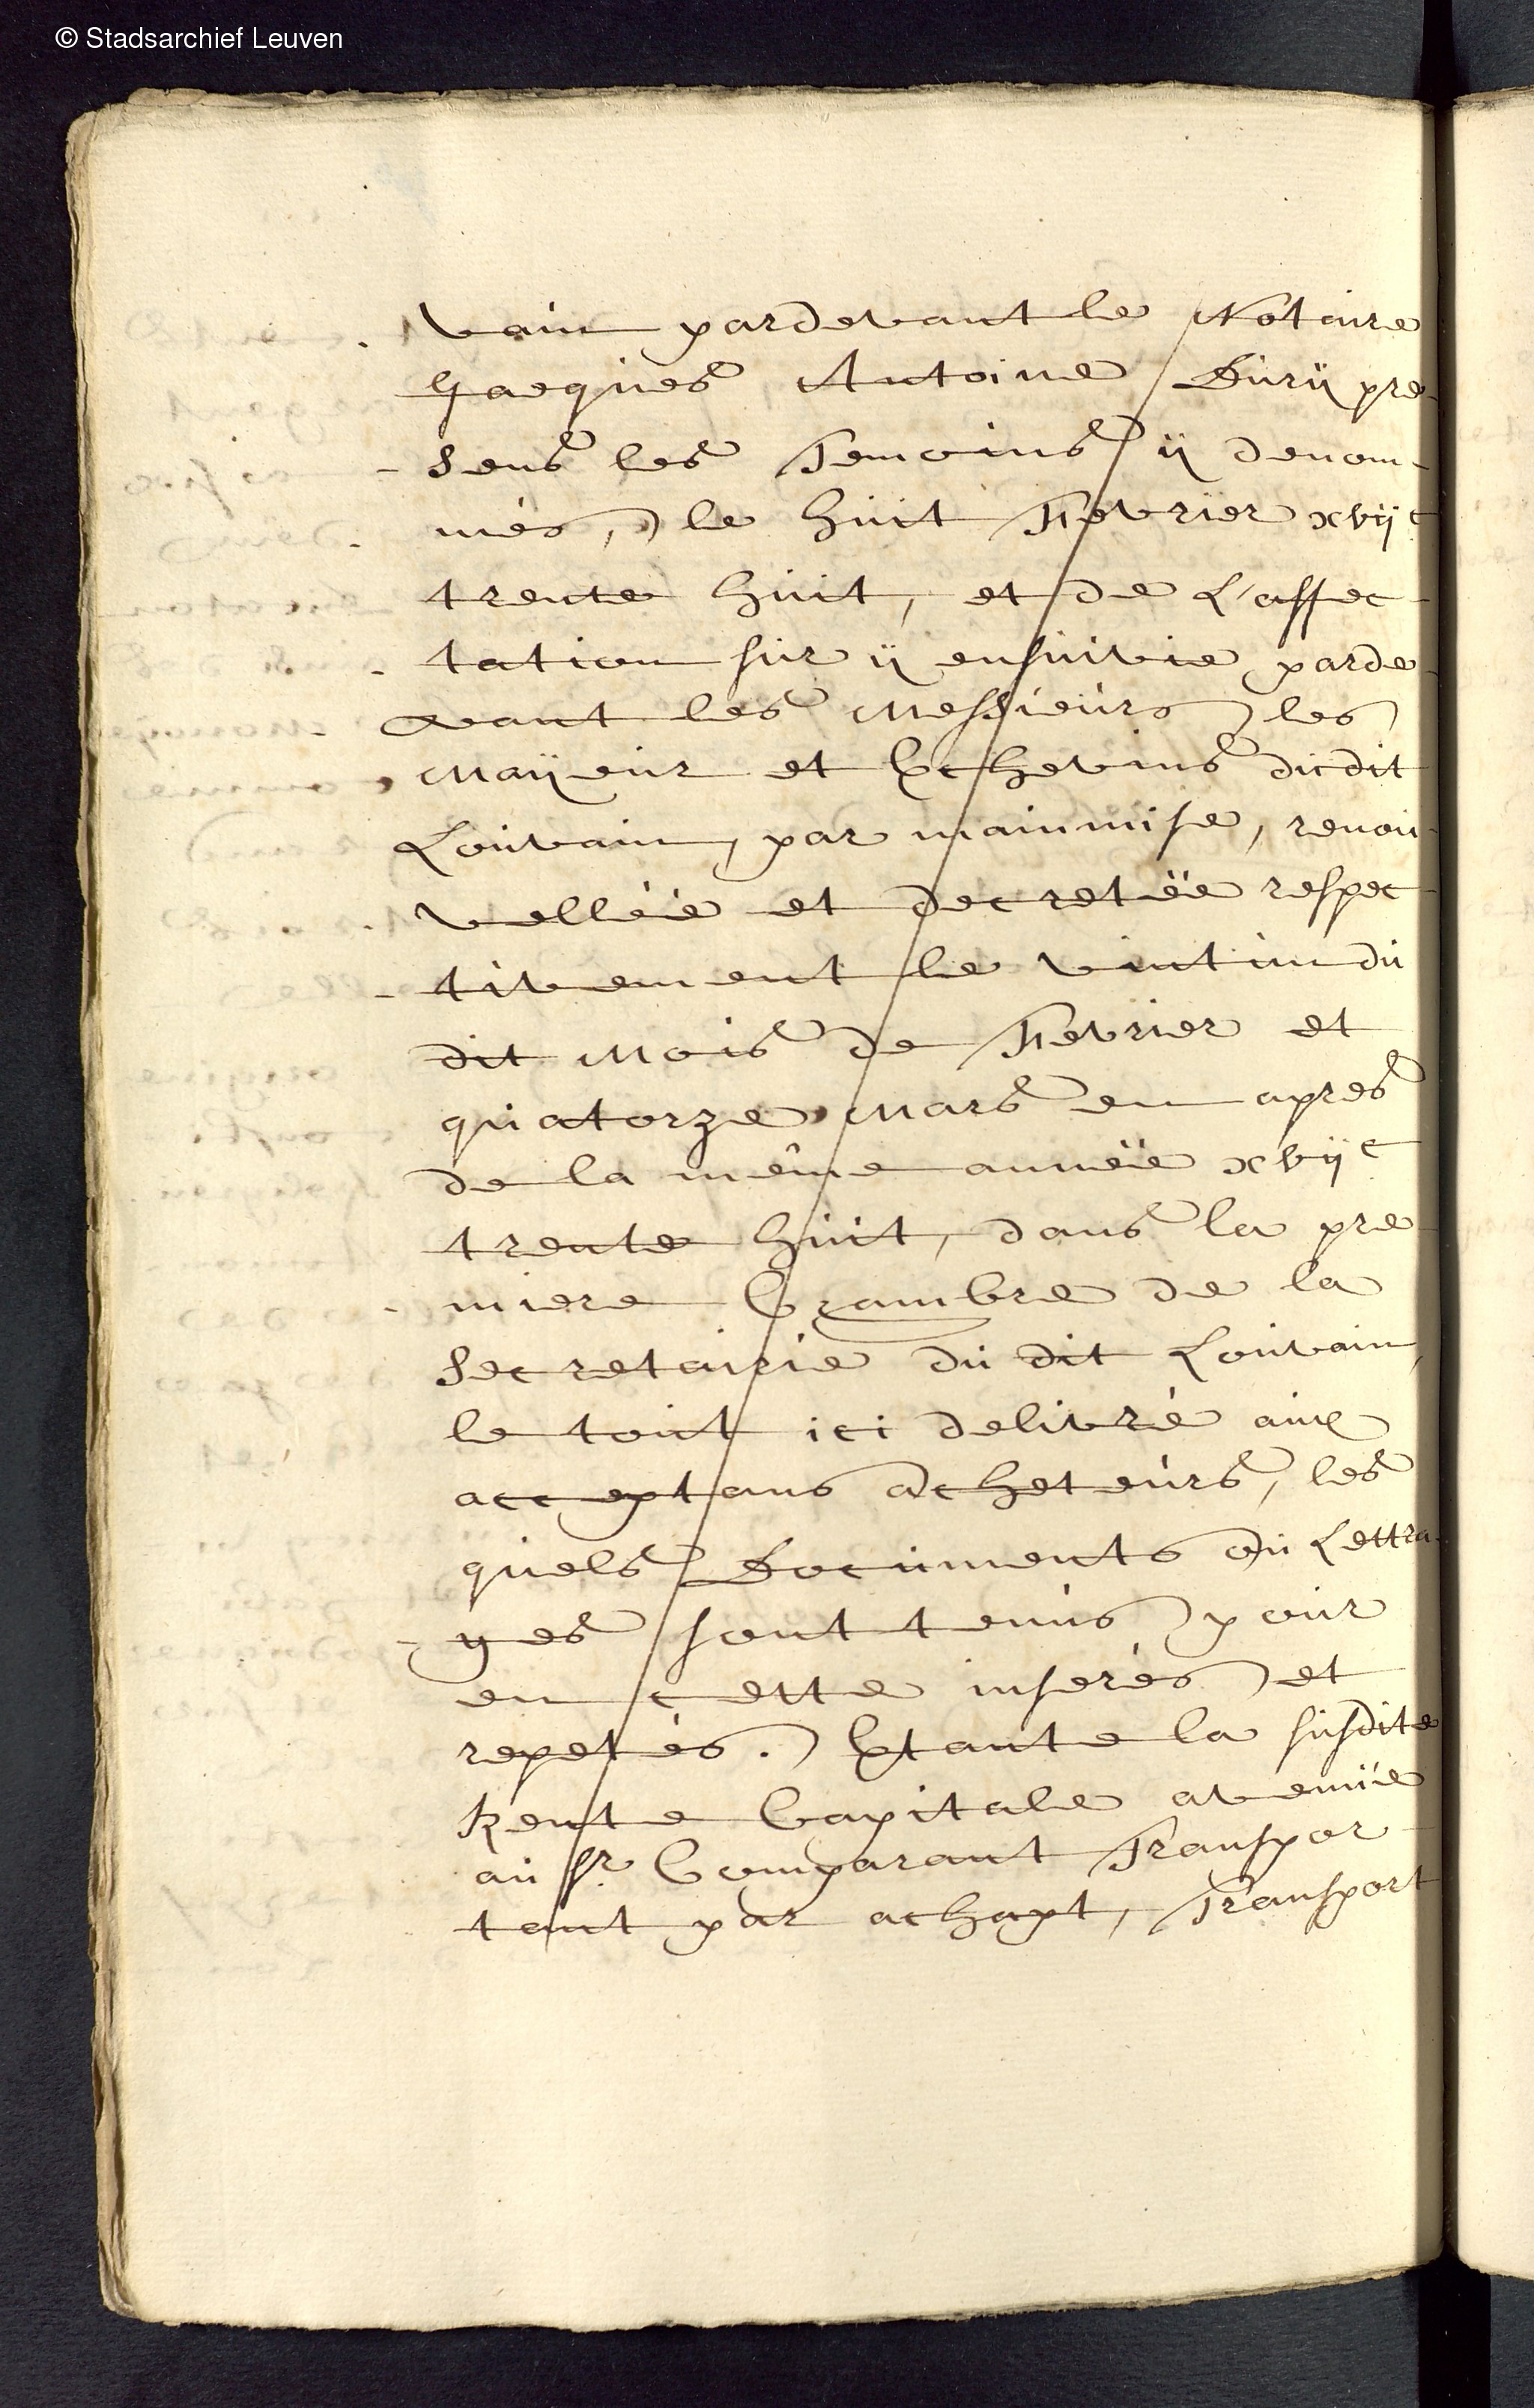 © Stadsarchief Leuven
vain pardevant le Notaire
Jacques Antoine Durÿ pre-
sens les Temoins ÿ denom-
més, le huit Fievrier xvijc
trente huit, et de L'affec-
tation sur ÿ ensuivie parde-
vant les Messieurs les
Maÿeur et Echevins dudit
Louvain, par mainmise, renou-
vellée et decretée respec-
tivement le vintun du
dit Mois de Fievrier et
quatorze Mars en apres
de la même année xvijc
trente huit, dans la pre-
miere Chambre de la
Secretairie du dit Louvain,
le tout ici delivré aux
acceptans acheteurs, les
quels Documents ou Lettra-
ges sont tenus pour
en cette inserés et
repetés. Etante la susdite
Rente Capitale avenuë
au Sr. Comparant Transpor-
tant par achapt, Transport